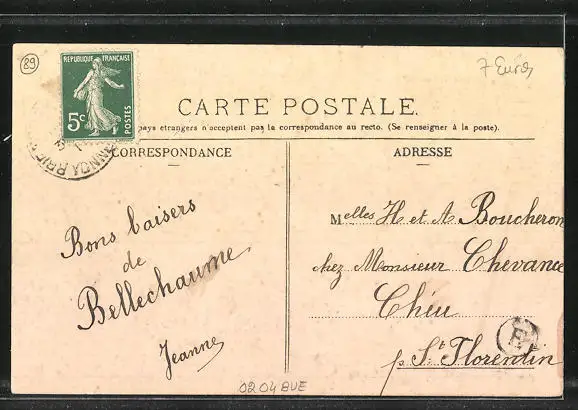 89
7 Euros
REPUBLIQUE FRANÇAISE
5c
POSTES
CARTE POSTALE
pays etrangers n'acceptent pas la correspondance au recto. (Se renseigner à la poste).
CORRESPONDANCE
ADRESSE
Bons baisers
de
Bellechaume
Jeanne
Melles H et A Boucheron
chez Monsieur Chevance
Chéu
p St Florentin
0204BUE